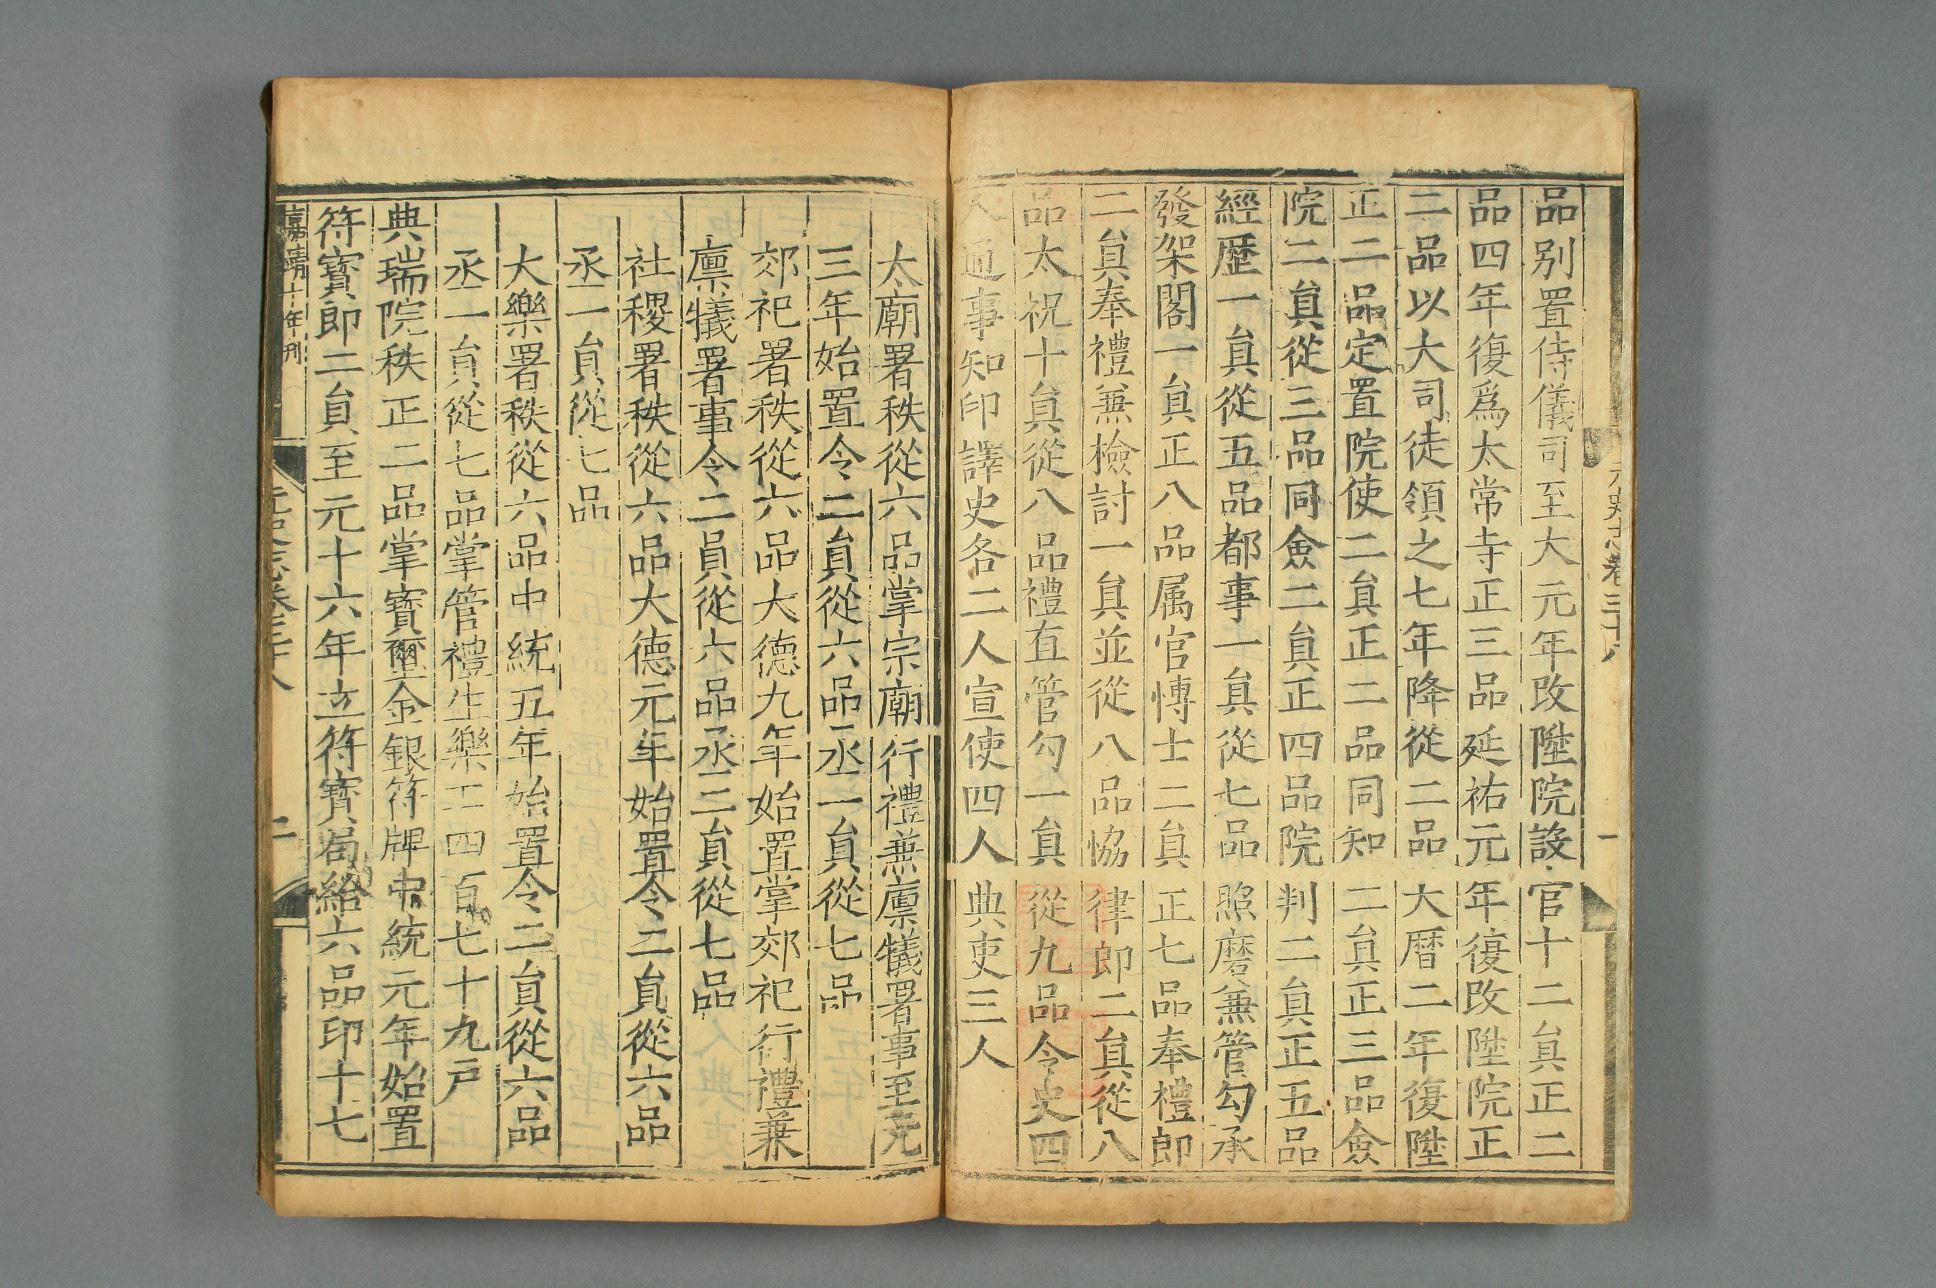 品别置侍儀司至大元年改陞院設官十二貟正二
品四年復爲太常寺正三品延祐元年復改陞院正
二品以大司徒領之七年降從二品大曆二年復陞
正二品定置院使二貟正二品同知二貟正三品僉
院二貟從三品同僉二貟正四品院判二貟正五品
經歷一貟從五品都事一貟從七品照磨兼管勾承
發架閣一貟正八品属官博士二貟正七品奉禮郎
二貟奉禮兼檢討一貟並從八品協律郎二貟從八
品太祝十貟從八品禮直管勾一貟從九品令史四
人通事知印譯史各二人宣使四人典吏三人
太廟署秩從六品掌宗廟行禮兼廪犧署事至元
三年始置令二貟從六品丞一貟從七品
郊祀署秩從六品大德九年始置掌郊祀行禮兼
廪犧署事令二員從六品丞二貟從七品
社稷署秩從六品大德元年始置令二貟從六品
丞一貟從七品
大樂署秩從六品中統五年始置令二貟從六品
丞一貟從七品掌管禮生樂工四百七十九戸
典瑞院秩正二品掌寳璽金銀符牌中統元年始置
符寳郎二貟至元十六年立符寳局給六品印十七
嘉靖十年刊
元史志卷三十八
二